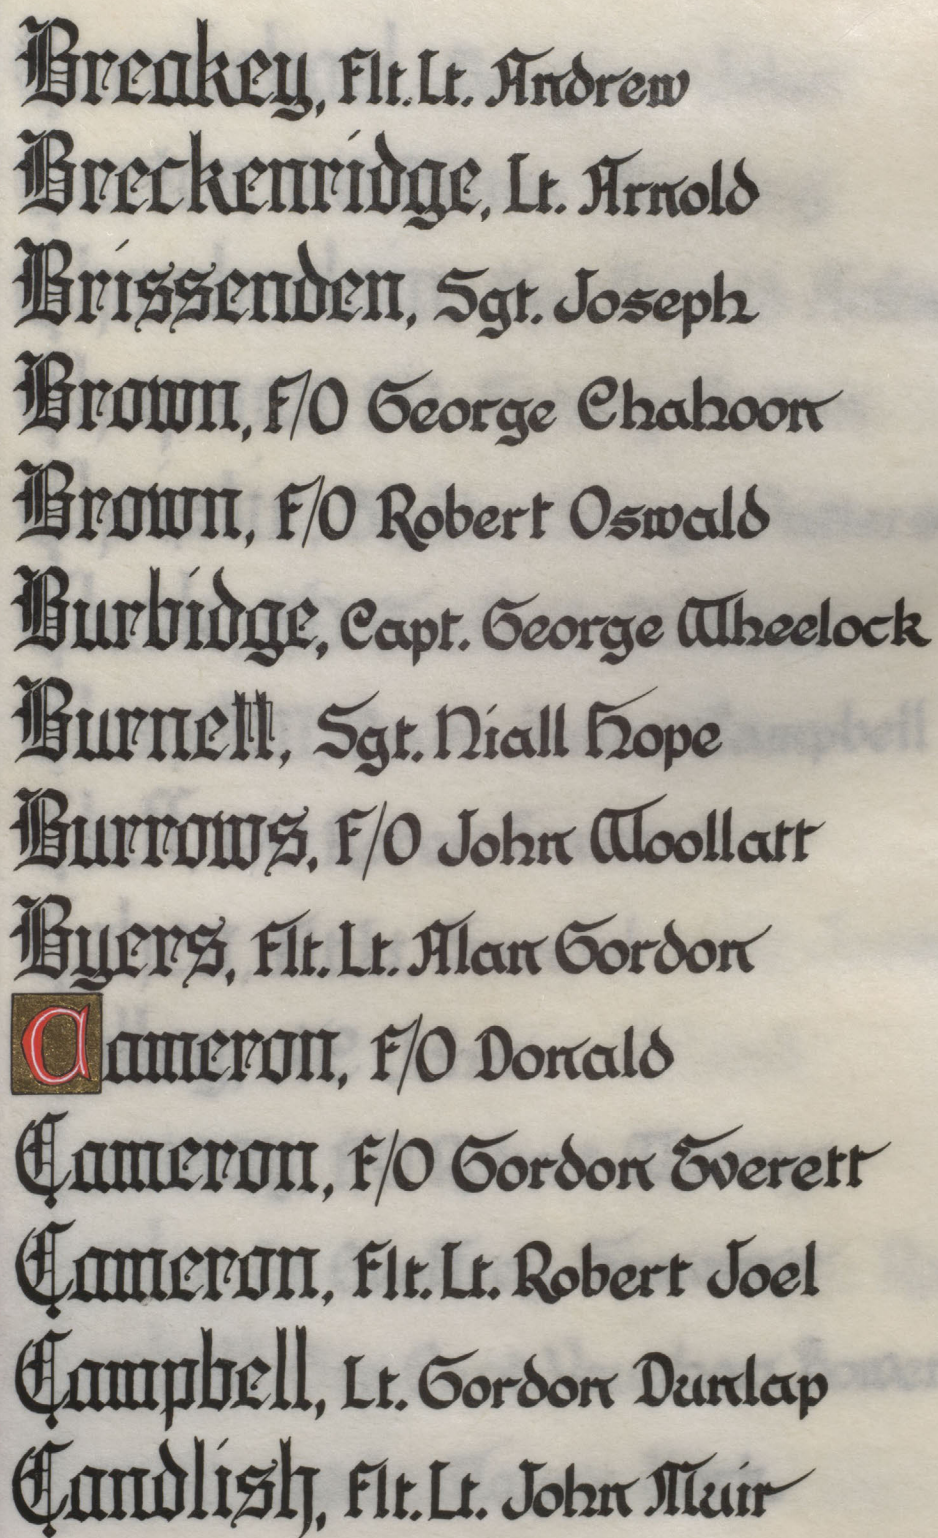 Breakey, Flt.Lt. Andrew
Breckenridge, Lt. Arnold
Brissenden, Sgt. Joseph
Brown, F/O George Chahoon
Brown, F/O Robert Oswald
Burbidge, Capt. George Wheelock
Burnett, Sgt. Niall Hope
Burrows, F/O John Woollatt
Byers, Flt.Lt. Alan Gordon
Cameron, F/O Donald
Cameron, F/O Gordon Everett
Cameron, Flt.Lt. Robert Joel
Campbell, Lt. Gordon Dunlap
Candlish, Flt.Lt. John Muir